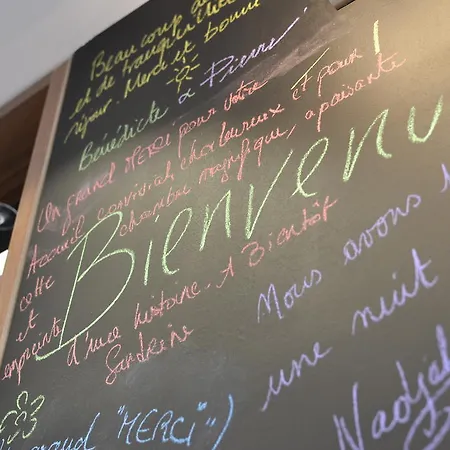 Beaucoup de
et de tranquillité
séjour. Merci et bonne
Bénédicte & Pierre
Un grand MERCI pour votre
Accueil convivial, chaleureux et pour
cette chambre magnifique, apaisante
et
empreinte d'une histoire. A Bientôt
Sandrine
Bienvenu
Nous avons
une nuit
Nadja
grand "MERCI")